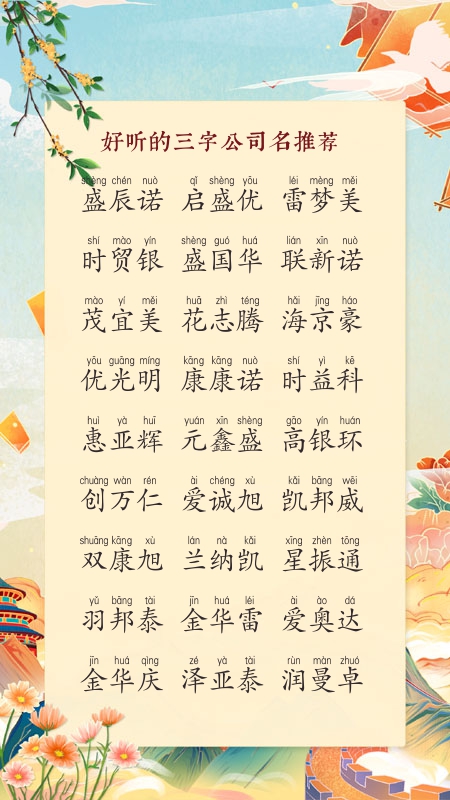 好听的三字公司名推荐
shèng chén nuò qǐ shèng yōu léi mèng měi
盛辰诺 启盛优 雷梦美
shí mào yín shèng guó huá lián xīn nuò
时贸银 盛国华 联新诺
mào yí měi huā zhì téng hǎi jīng háo
茂宜美 花志腾 海京豪
yōu guāng míng kāng kāng nuò shí yì kē
优光明 康康诺 时益科
huì yà huī yuán xīn shèng gāo yín huán
惠亚辉 元鑫盛 高银环
chuàng wàn rén ài chéng xù kǎi bāng wēi
创万仁 爱诚旭 凯邦威
shuāng kāng xù lán nà kǎi xīng zhèn tōng
双康旭 兰纳凯 星振通
yǔ bāng tài jīn huá léi ài ào dá
羽邦泰 金华雷 爱奥达
jīn huá qìng zé yà tài rùn màn zhuó
金华庆 泽亚泰 润曼卓